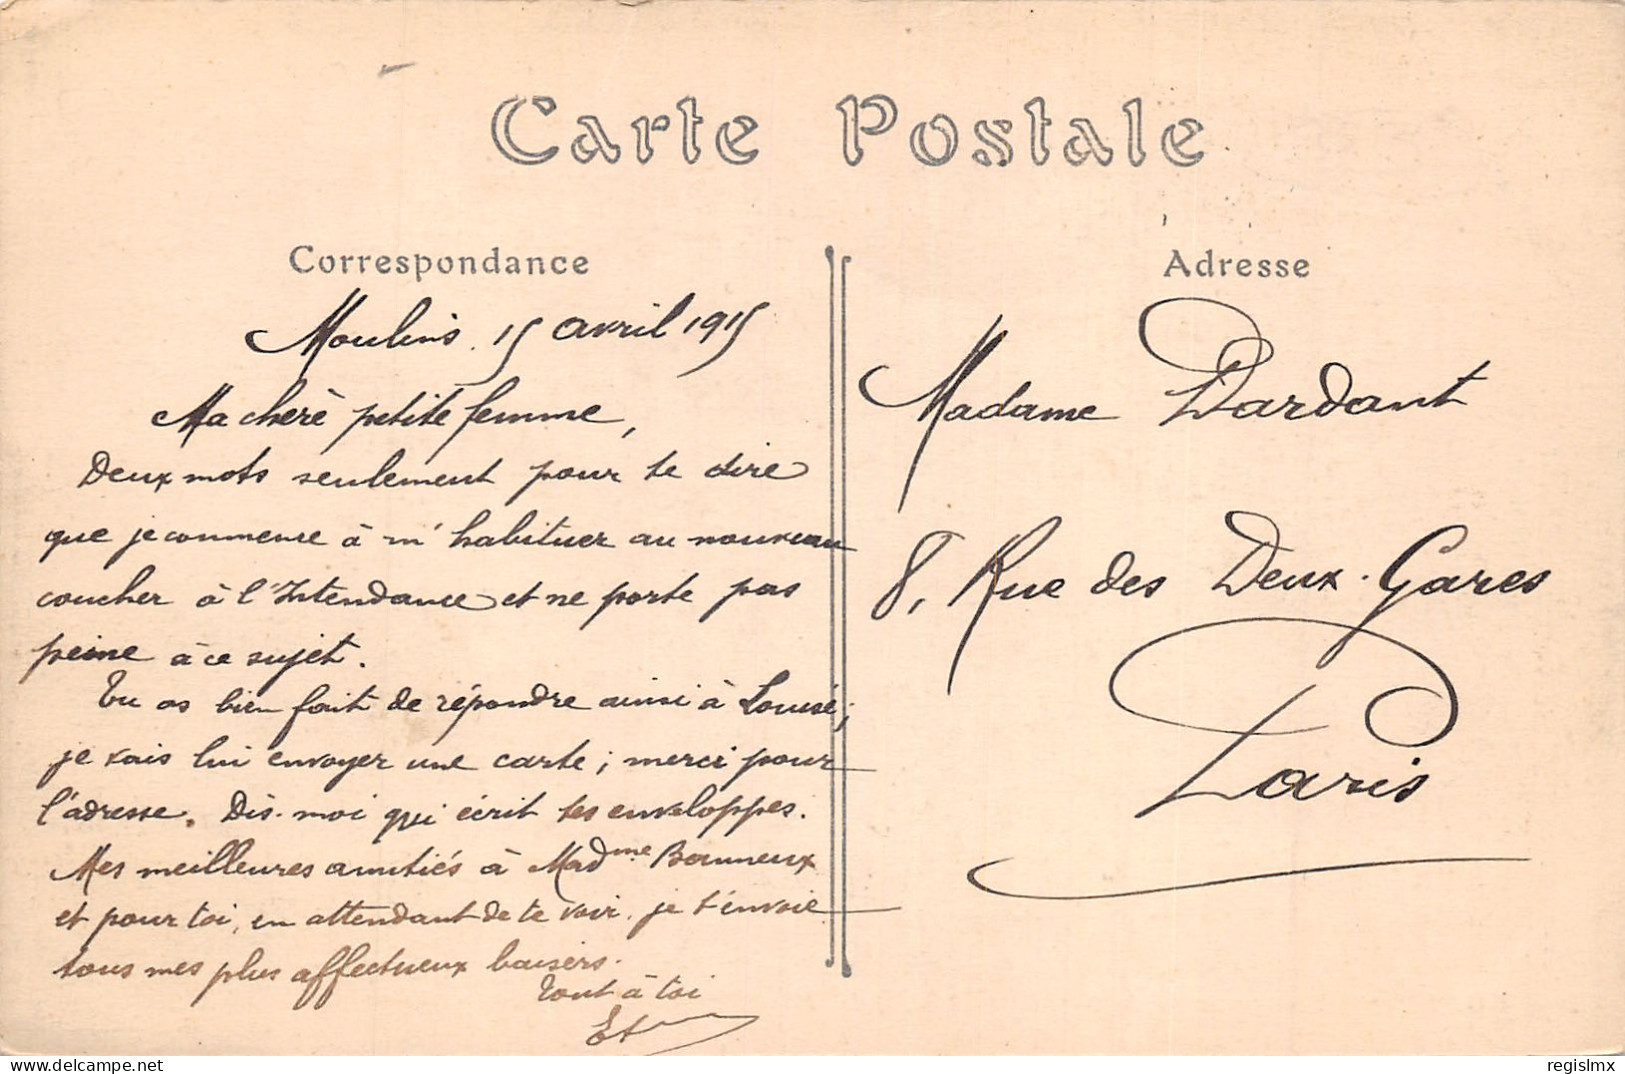 Carte Postale
Correspondance
Moulins. 15 avril 1915
Ma chère petite femme,
Deux mots seulement pour te dire
que je commence à m'habituer au nouveau
coucher à l'Intendance et ne porte pas
peine à ce sujet.
Tu as bien fait de répondre ainsi à Louise;
je vais lui envoyer une carte; merci pour
l'adresse. Dis-moi qui écrit tes enveloppes.
Mes meilleures amitiés à Madme Bonneux
et pour toi, en attendant de te voir, je t'envoie
tous mes plus affectueux baisers.
Tout à toi
Adresse
Madame Dardant
8, Rue des Deux-Gares
Paris
regislmx